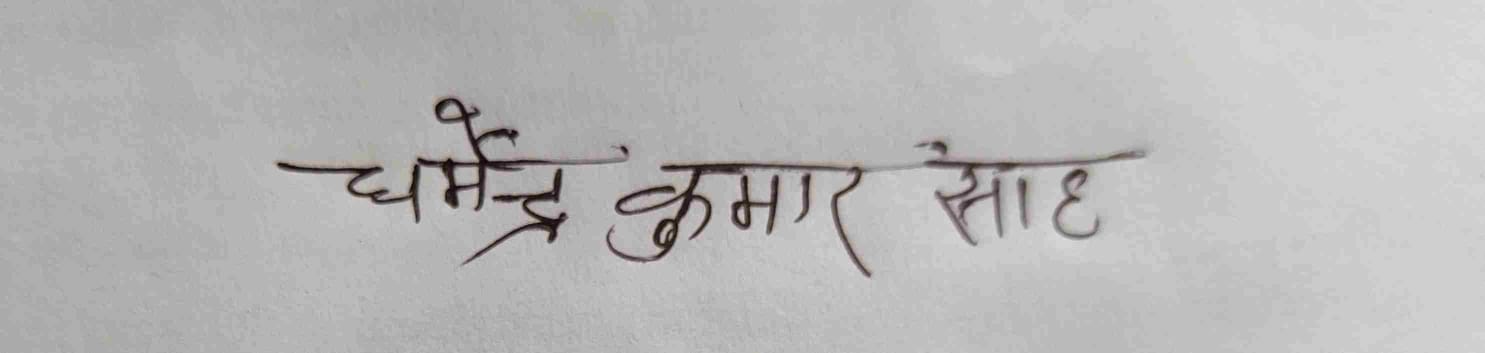 धर्मेन्द्र कुमार साह